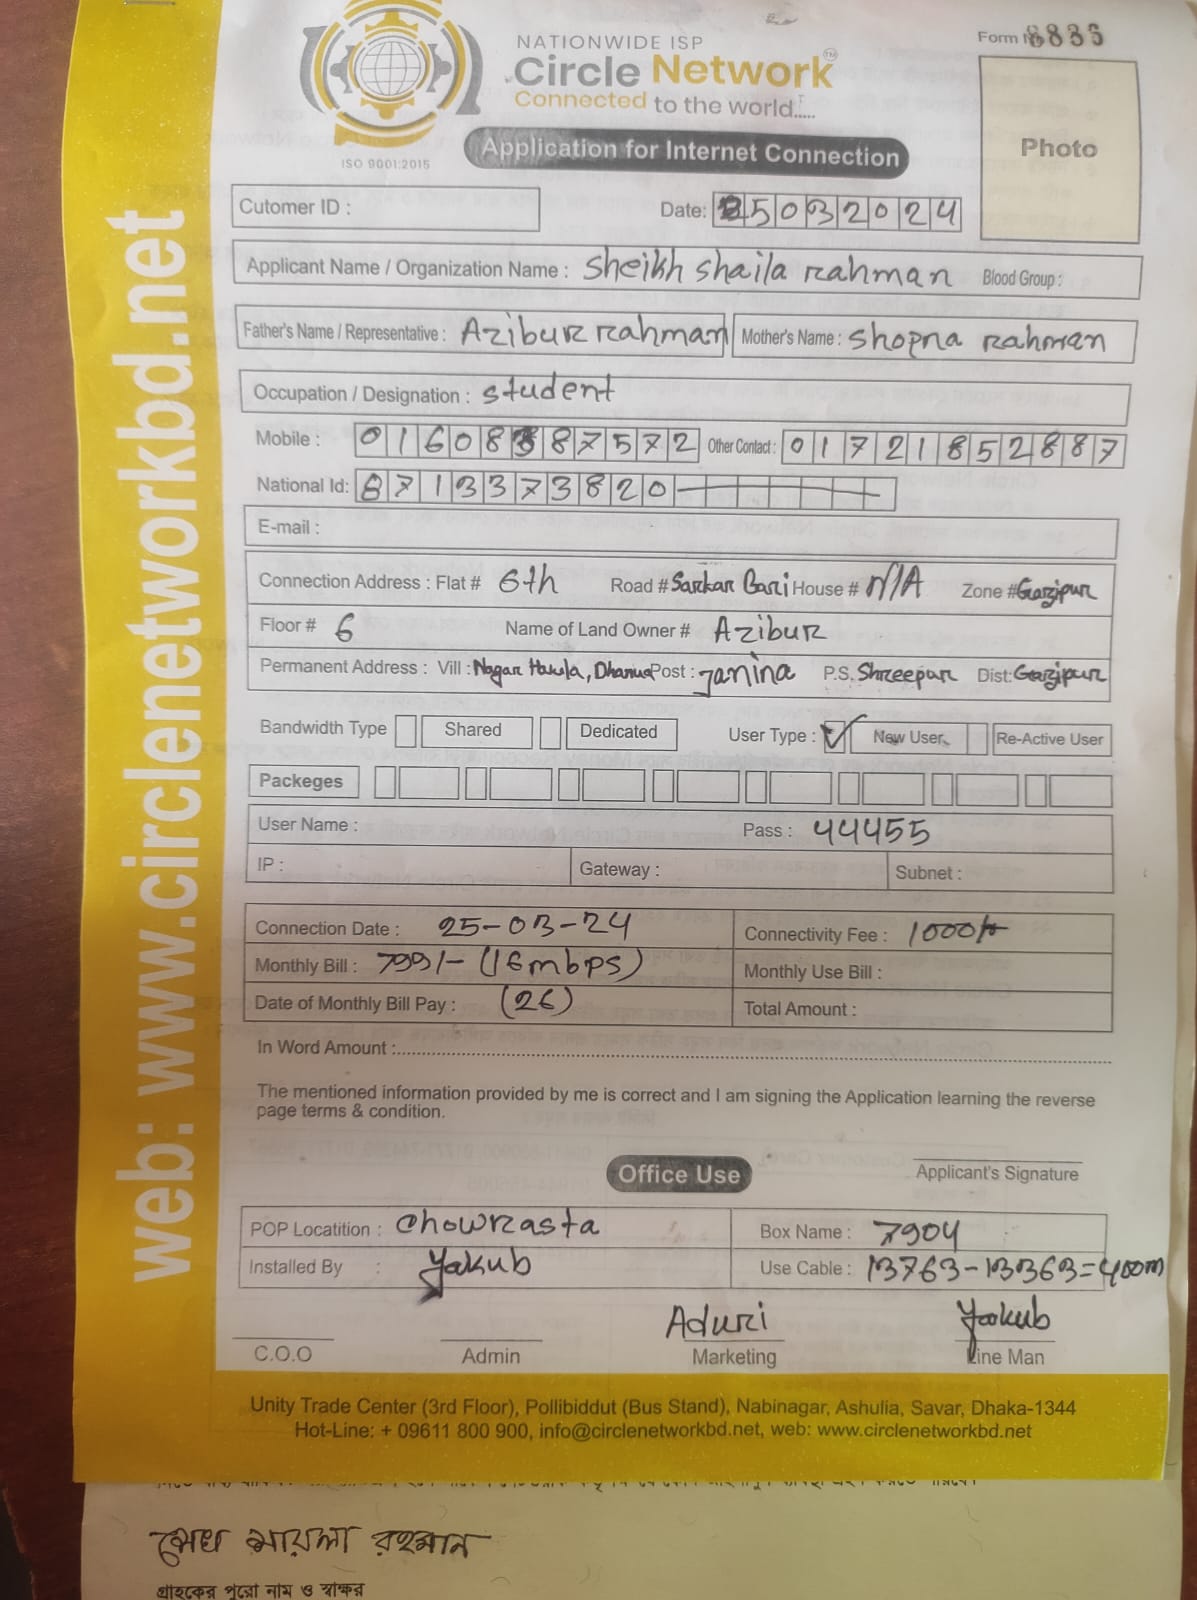 NATIONWIDE ISP
Circle Network™
Connected to the world.....
ISO 9001:2015
Form № 8835
Photo
Application for Internet Connection
Cutomer ID : Date: 25032024
Applicant Name / Organization Name : Sheikh shaila rahman Blood Group :
Father's Name / Representative : Azibur rahman Mother's Name : Shopna rahman
Occupation / Designation : student
Mobile : 01608387572 Other Contact : 01721852887
National Id: 8713373820
E-mail :
Connection Address : Flat # 6th Road # Sarkar Bari House # N/A Zone # Gazipur
Floor # 6 Name of Land Owner # Azibur
Permanent Address : Vill : Nagar Hawla, Dhanua Post : Janina P.S. Shreepur Dist: Gazipur
Bandwidth Type Shared Dedicated User Type : ✓ New User Re-Active User
Packeges
User Name : Pass : 44455
IP : Gateway : Subnet :
Connection Date : 25-03-24 Connectivity Fee : 1000/-
Monthly Bill : 799/- (16mbps) Monthly Use Bill :
Date of Monthly Bill Pay : (26) Total Amount :
In Word Amount :
The mentioned information provided by me is correct and I am signing the Application learning the reverse
page terms & condition.
Applicant's Signature
Office Use
POP Locatition : Chowrasta Box Name : 7904
Installed By : Yakub Use Cable : 13763-13363=400m
Aduri Yookub
C.O.O Admin Marketing Line Man
Unity Trade Center (3rd Floor), Pollibiddut (Bus Stand), Nabinagar, Ashulia, Savar, Dhaka-1344
Hot-Line: + 09611 800 900, info@circlenetworkbd.net, web: www.circlenetworkbd.net
web: www.circlenetworkbd.net
শেখ সায়লা রহমান
গ্রাহকের পুরো নাম ও স্বাক্ষর